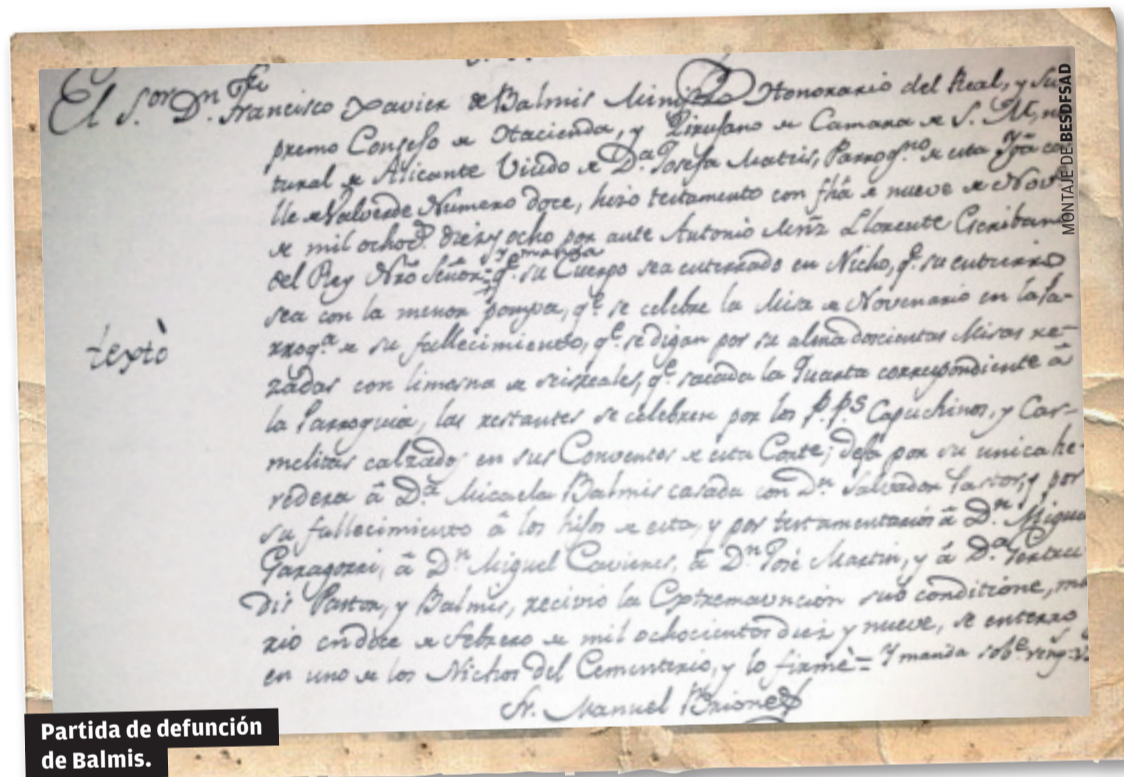 El S.or D.n Fran.co
Francisco Xavier de Balmis Ministro Honorario del Real, y Su
premo Consejo de Hacienda, y Cirujano de Camara de S. M, na
tural de Alicante Viudo de D.a Josefa Mateis, Parroq.no de esta Ygla ca
lle de Valverde Numero doce, hizo testamento con fha de nueve de Nov
de mil ochoc.s diez y ocho por ante Antonio Llorente Escribano
del Rey Nro Señor= y manda q.e su Cuerpo sea enterrado en Nicho, q.e su entierro
sea con la menor pompa, q.e se celebre la Misa de Novenario en la Pa-
rroq.a de su fallecimiento, q.e se digan por su alma doscientas Misas re-
zadas con limosna de seis reales, q.e sacada la Quarta correspondiente â
la Parroquia, las restantes se celebren por los P.P.s Capuchinos, y Car-
melitas calzados en sus Conventos de esta Corte; deja por su unica he-
redera â D.a Micaela Balmis casada con D.n Salvador Pastor, y por
su fallecimiento â los hijos de esta, y por testamentarios â D.n Miguel
Garagorri, â D.n Miguel Cavieres, â D.n José Martin, y â D.a Gertru
dis Pastor, y Balmis, recivio la Extremauncion sub conditione, mu
rio en doce de febrero de mil ochocientos diez y nueve, se enterro
en uno de los Nichos del Cementerio, y lo firmè= Y manda
Fr. Manuel Briones
textò
MONTAJE DE BESDFSAD
Partida de defunción
de Balmis.